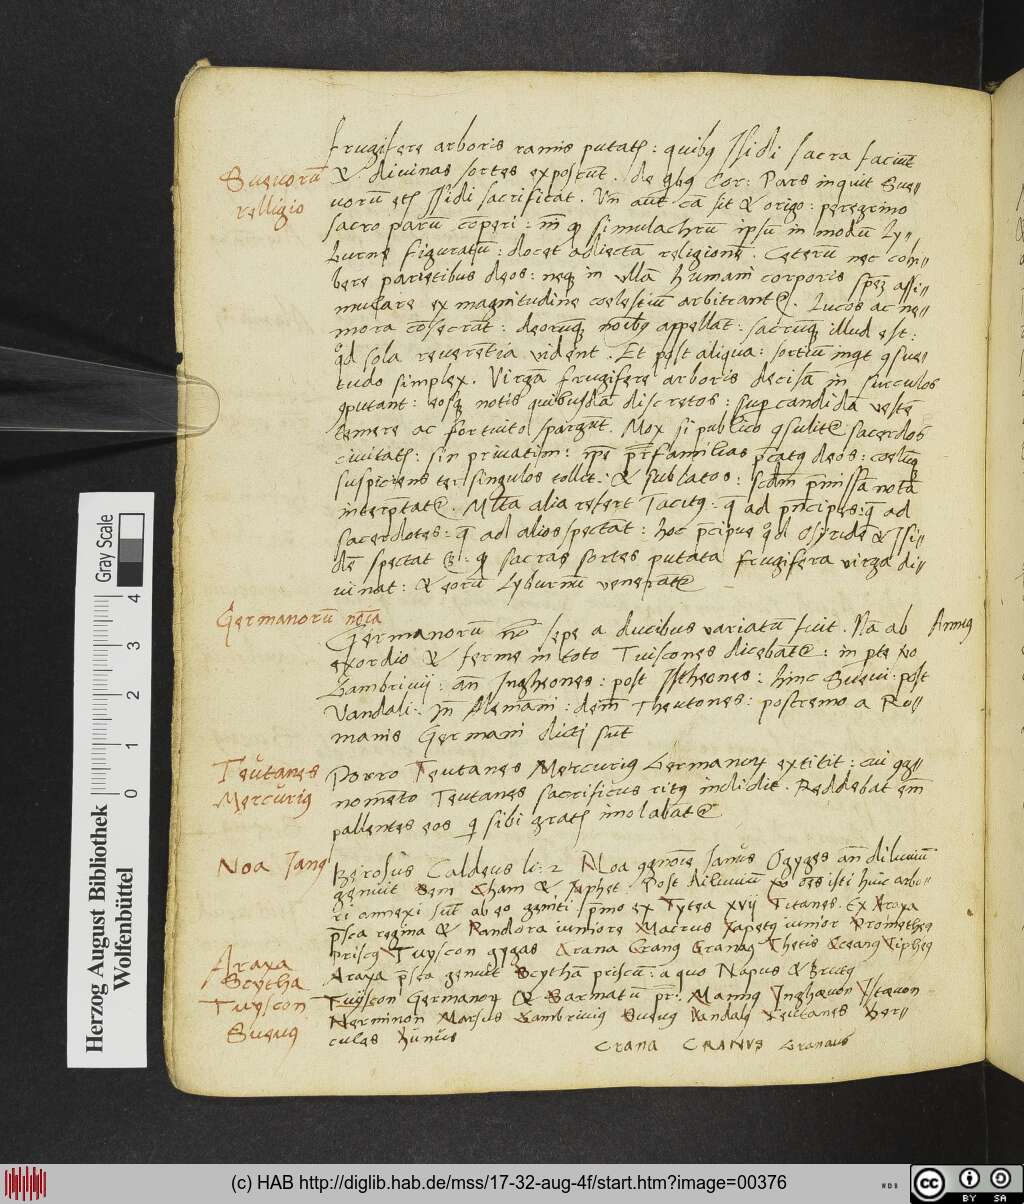 frugifere arboris ramis putatꝭ : quibꝫ Isidi sacra faciūt
Sueuorū
relligio
& diuinas sortes exposcūt . de qbꝫ Cor: Pars inquit Sue⸗
uorū etꝫ Isidi sacrificat. Vn̄ aut̄ cā sit & origo : peregrino
sacro parū cōperi : nī qꝫ simulachrū ipsū in modū Ly⸗
burne figuratū : docet adiectā religionē . Ceterū nec cohi⸗
bere parietibus deos : neqꝫ in vllā humani corporis spēꝫ assi⸗
mulare ex magnitudine coelestiū arbitrant᷑ . Lucos ac ne⸗
mora cōsecrāt : deorūqꝫ noībꝫ appellāt : sacrūqꝫ illud est :
qd sola reuerētia vident . Et post aliqua : sortiū inqt ꝯsue⸗
tudo simplex . Virgā frugifere arboris decisā in surculos
ꝯputant : eosqꝫ notis quibusdā discretos : sup candidā vestē
temere ac fortuito spargūt . Mox si publico ꝯsulit᷑ sacerdos
ciuitatꝭ : sin priuatim : ipē pr̄familias p̄catꝫ deos : coelūqꝫ
suspiciens ter singulos tollit : & sublatos : scdm̄ p̄missā notā
interp̄tat᷑ . Mlta alia refert Tacitꝫ : q̄ ad pn̄cipes : q̄ ad
sacerdotes : q̄ ad alios spectat : hoc p̄cipue qd Osyridē & Isi⸗
dē spectat : qꝫ sacras sortes putata frugifera virga di⸗
uinat : & eorū Lyburnū venerat᷑
Germanorū noīa
Germanorū nō sepe a ducibus variatū fuit . Nā ab
Annīꝫ
exordio & ferme in toto Tuiscones dicebāt᷑ : in pte v̄o
Gambriuij : an̄ Ingheones : post Istheones : hinc Sueui : post
Vandali : In̄ Alemāni : dem̄ Theutones : postremo a Ro⸗
manis Germani dicti sūt
Teutanes
Mercuriꝫ
Porro Teutanes Mercuriꝫ Germanoꝝ extitit : cui
nomēto Teutanes sacrificus ritꝫ indidit . Reddebat em̄
pallentes eos q̄ sibi gratꝭ imolabāt᷑
Noa Janꝫ
Berosus Caldeus li: 2 Noa Janus Ogyges an̄ diluuiū
genuit Sem Cham & Japhet . Post diluuiū v̄o oēs isti huic arbo⸗
ri annexi sūt ab eo geniti pmo ex Tytea xvij Titanes . Ex Araxa
p̄sca regina & Pandora iuniore Macrus Iapetꝫ iunior Prometheꝫ
priscꝫ Tuyscon gygas Crana Cranꝫ Granaꝫ Thetis Oceanꝫ Tipheꝫ
Araxa
Scytha
Araxa p̄sca genuit Scythā priscū : a quo Napus & Prutꝫ
Tuyscon
Tuyscon Germanoꝝ & Sarmatū pr̄ : Mannꝫ Inghæuon Istæuon
Herminon Marsus Gambriuiꝫ Sueuꝫ Vandalꝫ Teutanes Her⸗
Sueuꝫ
cules Hunus
Crana CRANVS Granaus
Gray Scale
0 1 2 3 4
Herzog August Bibliothek
Wolfenbüttel
(c) HAB http://diglib.hab.de/mss/17-32-aug-4f/start.htm?image=00376
WDB
cc BY SA